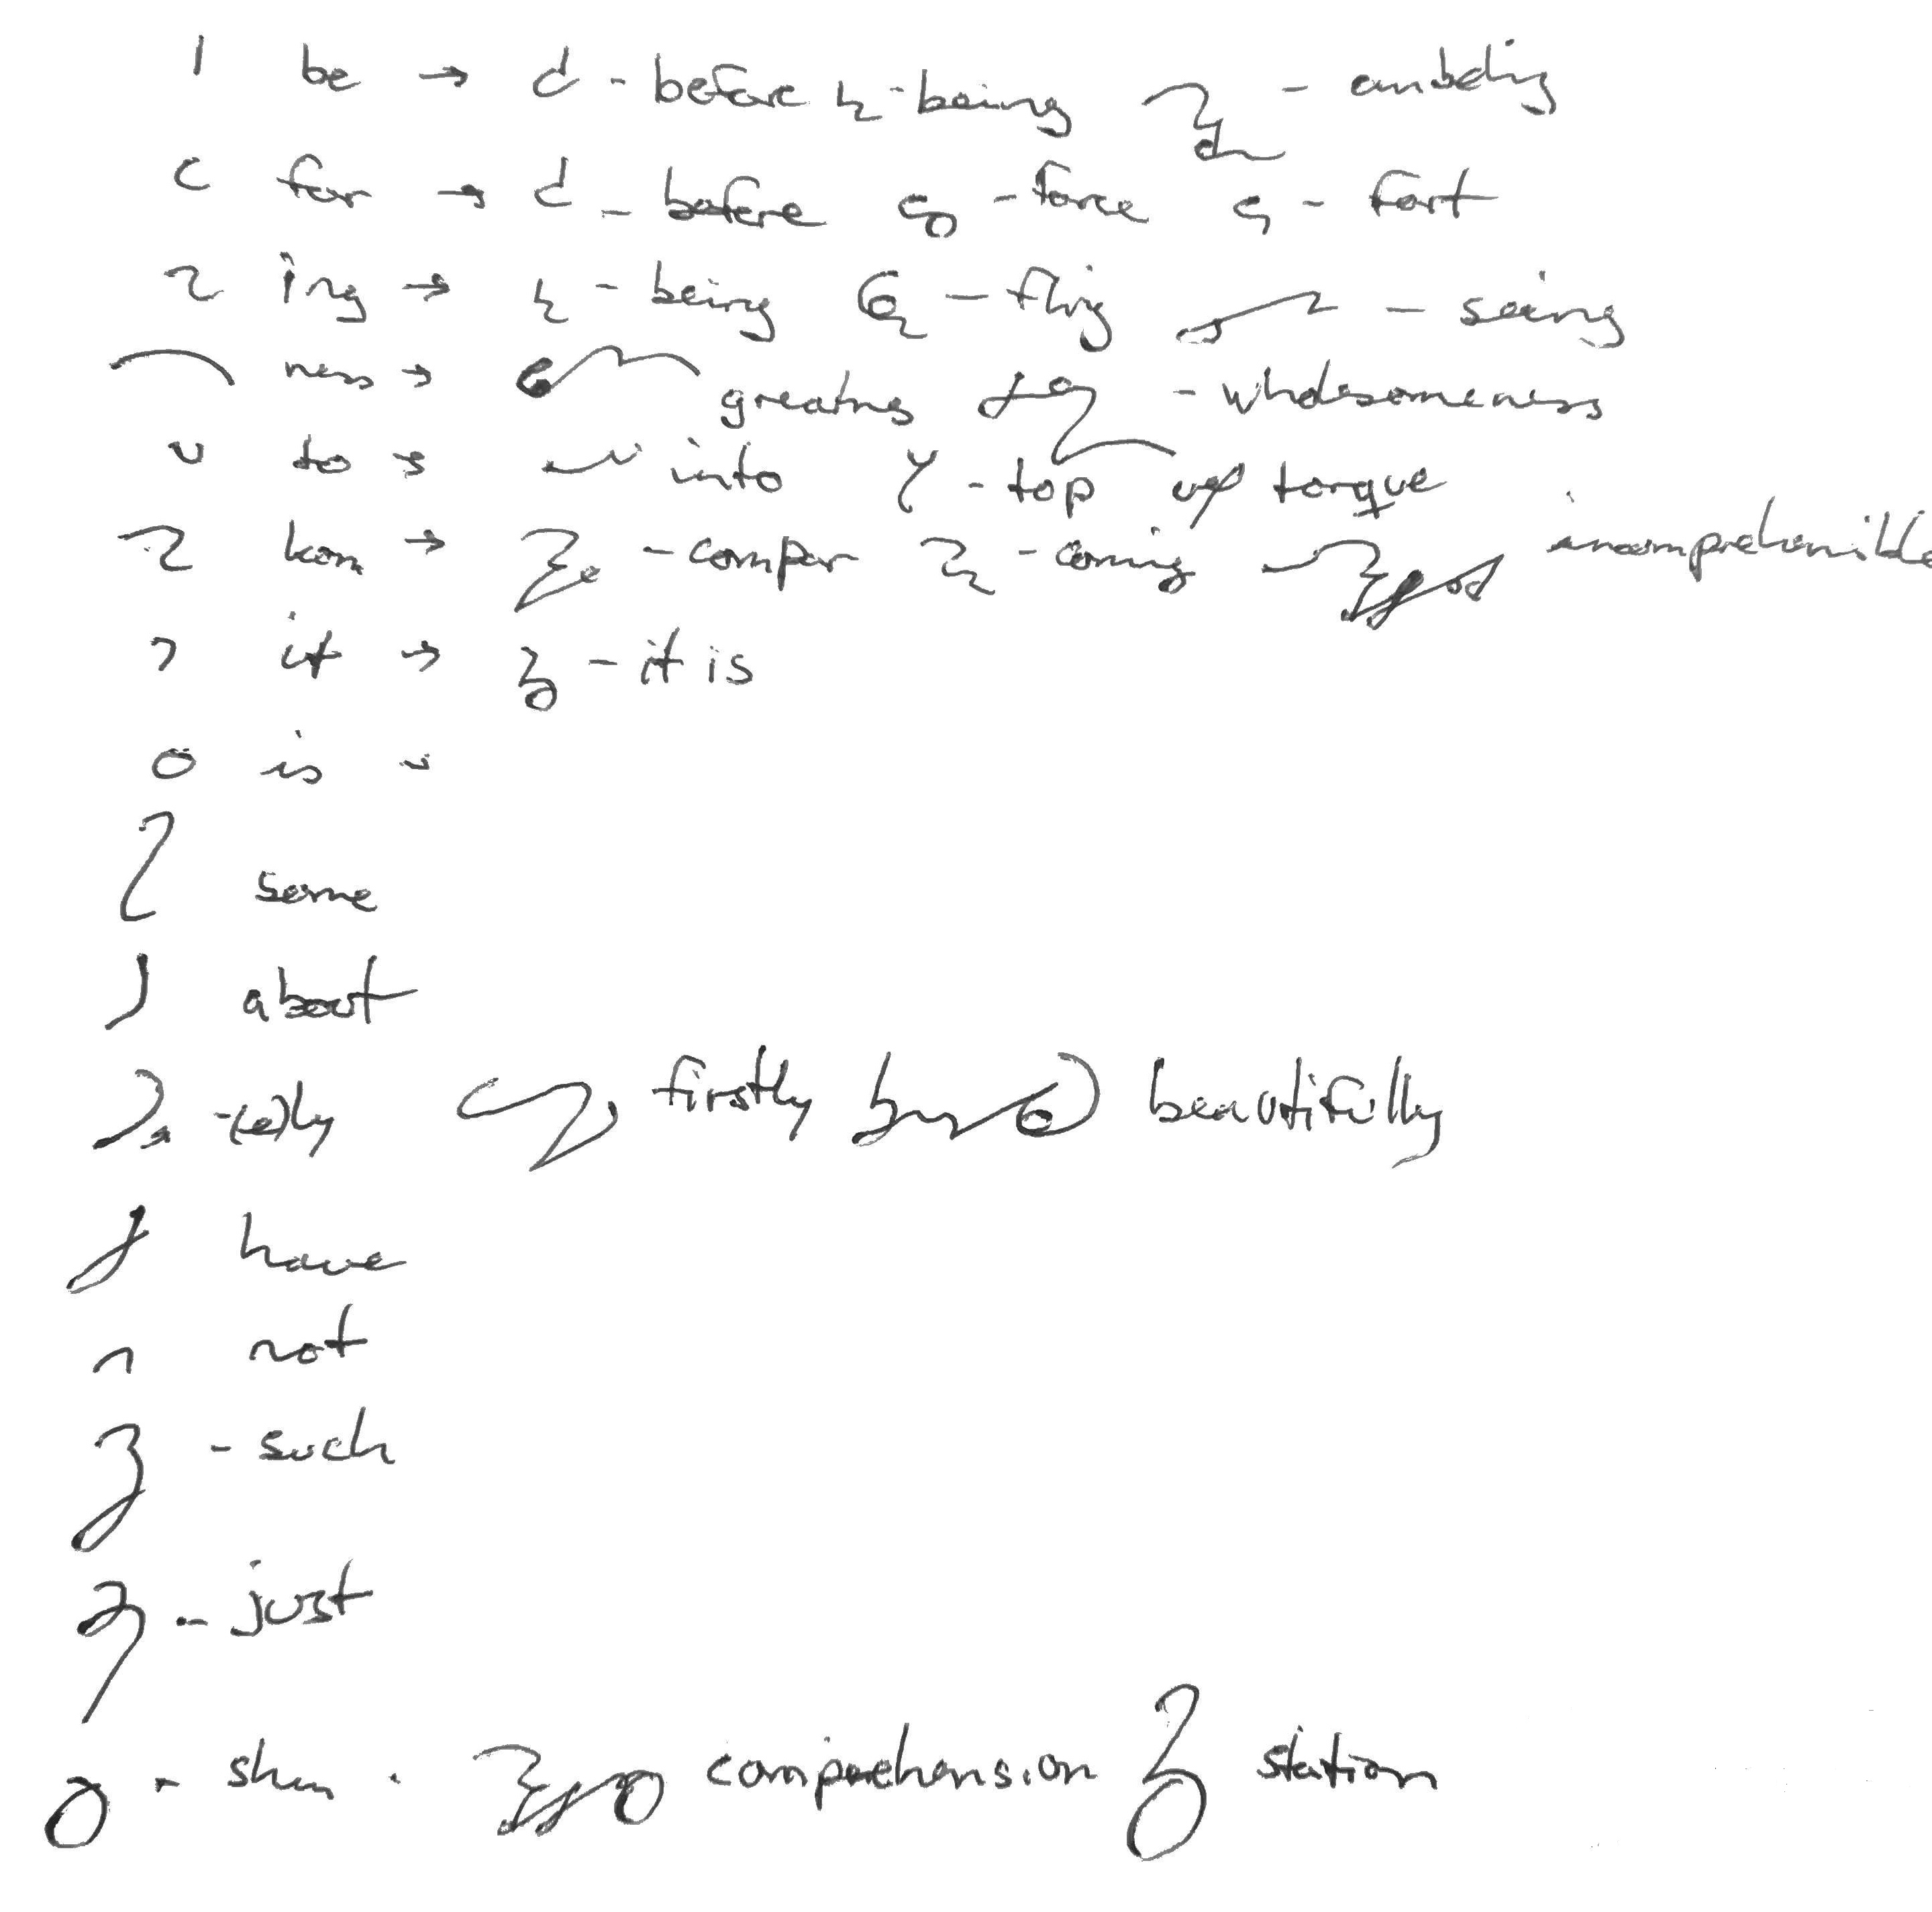 be → - before - being -
for → - before - force - fort
ing → - being - flying - seeing
ness → greatness - wholesomeness
to → into - top torque
kom → - compar - coming incomprehensible
it → - it is
is
some
about
-(e)ly firstly beautifully
have
not
- such
- just
- shun . comprehension station